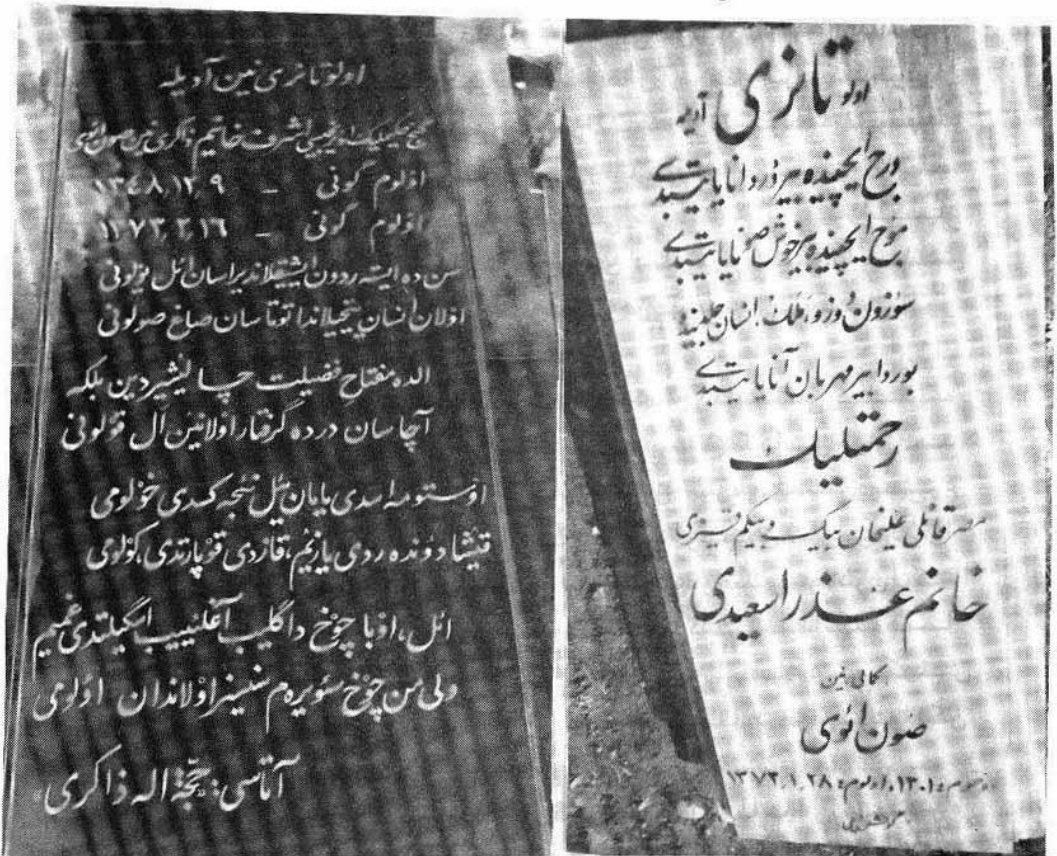 اولو تانری آدیله
درج ایچینده بیر دُردانا یاتیبدی
موج ایچینده بیر خوش صفا یاتیبدی
سوزون دوزو، ملک، انسان جلدینده
بوردا بیر مهربان آنا یاتیبدی
رحمتلیک
علیخان بیگ و بیگم قیزی
خانم عذرا سعیدی
کمالی نین
صون ائوی
۱۳۰۱، اولوم: ۱۳۷۲،۱،۲۸
اولو تانری نین آدیله
اشرف خانیم ذاکری نین صون ائوی
گونی – ۱۳۴۸،۱۲،۹
اؤلوم گونی – ۱۳۷۳،۲،۱۶
سن ده ایسته ردون ایشیقلاندیراسان ائل یولونی
اولان انسان ییخیلاندا توتاسان صاغ صولونی
الده مفتاح فضیلت چالیشیردین بلکه
آچاسان درده گرفتار اولانین ال قولونی
اوستومه اسدی یامان یئل نئجه کسدی خولومی
قیشا دونده ردی یازیم، قازدی قوپارتدی، کولومی
ائل، اوبا چوخ داگلیب آغلییب ایگیلتدی غمیم
ولی من چوخ سئویره م سنسیز اولاندان اولومی
آتاسی: حجة اله ذاکری